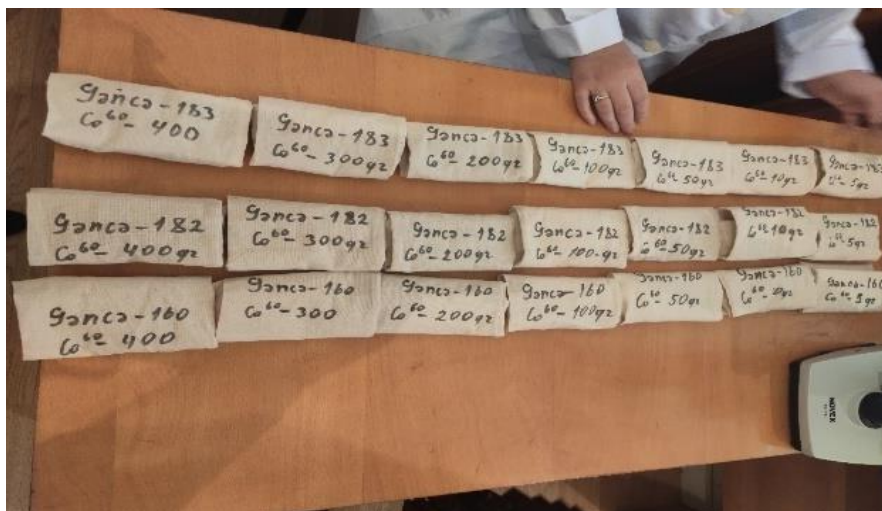 Gəncə-183
Co⁶⁰- 400
Gəncə-183
Co⁶⁰- 300qr
Gəncə-183
Co⁶⁰- 200qr
Gəncə-183
Co⁶⁰- 100qr
Gəncə-183
Co⁶⁰- 50qr
Gəncə-183
Co⁶⁰- 10qr
Gəncə-183
Co⁶⁰- 5qr
Gəncə-182
Co⁶⁰- 400qr
Gəncə-182
Co⁶⁰- 300qr
Gəncə-182
Co⁶⁰- 200qr
Gəncə-182
Co⁶⁰- 100qr
Gəncə-182
Co⁶⁰- 50qr
Gəncə-182
Co⁶⁰- 10qr
Gəncə-182
Co⁶⁰- 5qr
Gəncə-160
Co⁶⁰- 400
Gəncə-160
Co⁶⁰- 300
Gəncə-160
Co⁶⁰- 200qr
Gəncə-160
Co⁶⁰- 100qr
Gəncə-160
Co⁶⁰- 50qr
Gəncə-160
Co⁶⁰- 10qr
Gəncə-160
Co⁶⁰- 5qr
NOVEX